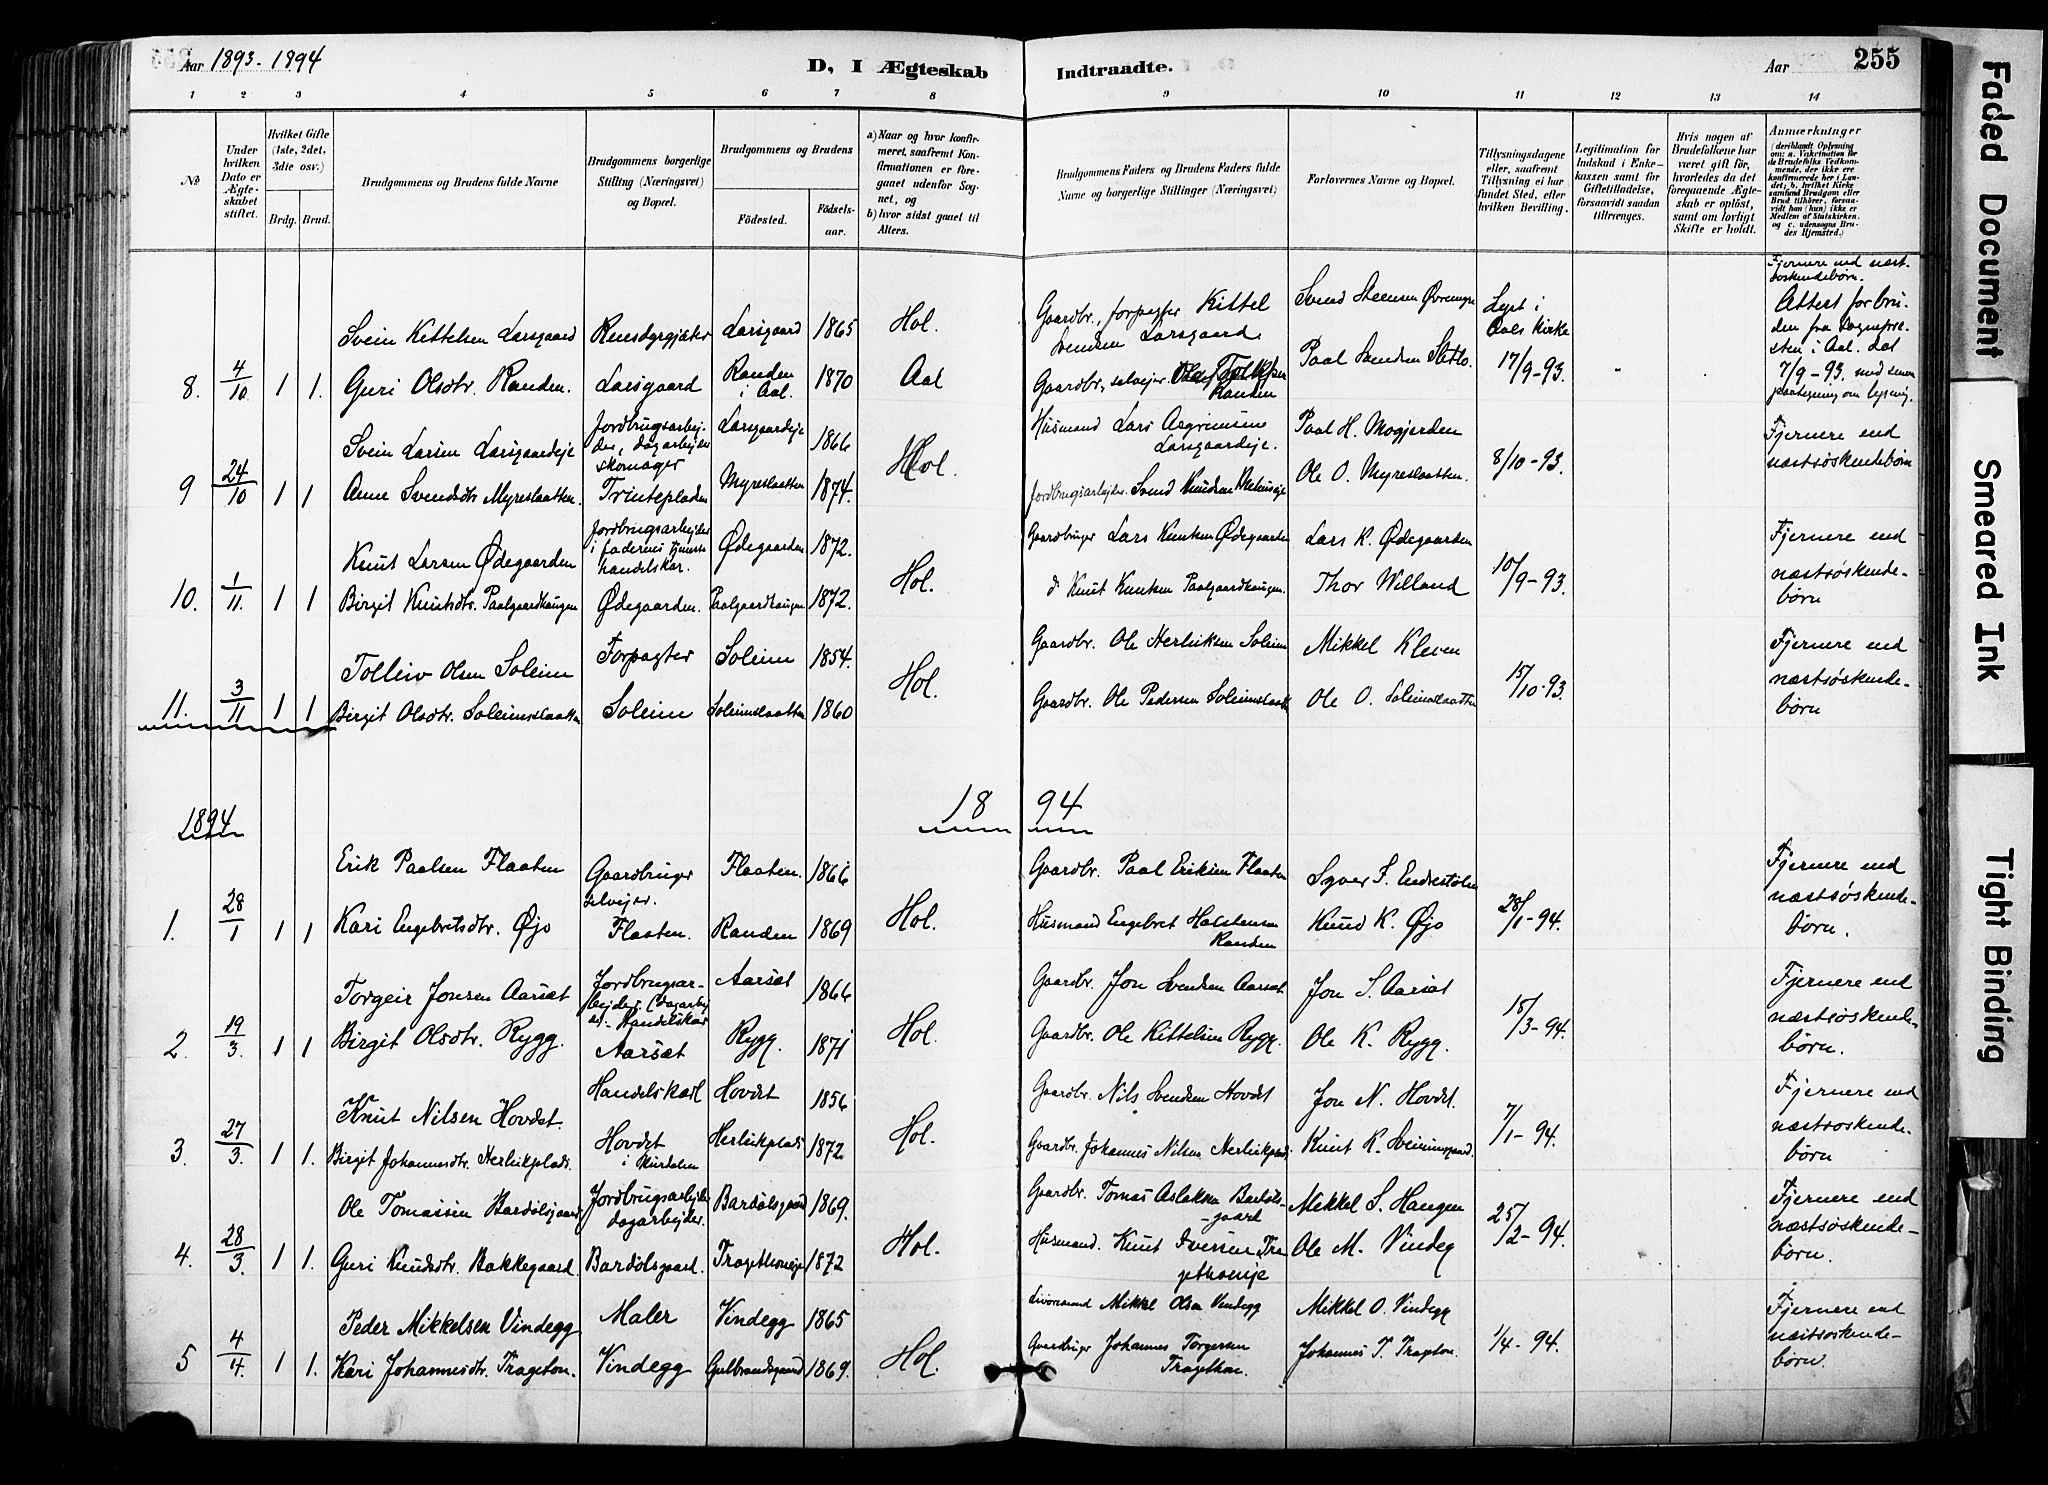 Aar 1893-1894
D, I Ægteskab
Indtraadte.
Aar
255
1 2 3 4 5 6 7 8 9 10 11 12 13 14
No
Under hvilken Dato er Ægteskabet stiftet.
Hvilket Gifte (1ste, 2det, 3die osv.)
Brdg. Brud.
Brudgommens og Brudens fulde Navne
Brudgommens borgerlige Stilling (Næringsvei) og Bopæl.
Brudgommens og Brudens
Fødested.
Fødselsaar.
a) Naar og hvor konfirmeret, saafremt Konfirmationen er foregaaet udenfor Sognet, og
b) hvor sidst gaaet til Alters.
Brudgommens Faders og Brudens Faders fulde Navne og borgerlige Stillinger (Næringsvei)
Forlovernes Navne og Bopæl.
Tillysningsdagene eller, saafremt Tillysning ei har fundet Sted, efter hvilken Bevilling.
Legitimation for Indskud i Enkekassen samt for Giftetilladelse, forsaavidt saadan tiltrænges.
Hvis nogen af Brudefolkene har været gift før, hvorledes da det foregaaende Ægteskab er opløst, samt om lovligt Skifte er holdt.
Anmærkninger (deriblandt Oplysning om: a. Vakcination for de Brudefolks Vedkommende, der ikke ere konfirmerede her i Landet; b. hvilket Kirkesamfund Brudgom eller Brud tilhører, forsaavidt han (hun) ikke er Medlem af Statskirken, og c. udensogns Brudes Hjemsted.)
8. 4/10 1 1.
Svein Kittelsen Larsgaard
Guri Olsdtr. Randen.
Rensdyrgjæter
Larsgaard
Larsgaard 1865
Randen i Aal. 1870
Hol.
Aal
Gaardbr. forpagter Kittel Svendsen Larsgaard
Gaardbr., selveier Randen
Paal Svendsen
Lyst i Aals Kirke 17/9-93.
Fjernere end næstsøskendebørn.
Attest for bruden fra Sognepresten i Aal. dat 7/9-93. med paategning om lysning.
9 24/10 1 1
Svein Larsen Larsgaardeje
Anne Svendsdtr Myreslaatten.
Jordbrugsarbejder, dagarbejder skomager
Trintepladen
Larsgaardeje 1866
Myreslaatten 1874.
Hol.
Husmand Lars Asgrimsen Larsgaardeje.
Jordbrugsarbejder. Svend Knudsen
Paal H. Mogjerden
Ole O. Myreslaatten.
8/10-93.
Fjernere end næstsøskendebørn
10. 1/11. 1 1
Knut Larsen Ødegaarden
Birgit Knutsdtr. Paalgaardhaugen
Jordbrugsarbejder i faderens tjeneste handelskar.
Ødegaarden.
Ødegaarden 1872.
Paalgaardhaugen 1872.
Hol.
Gaardbruger Lars Knutsen Ødegaarden
d Knut Knutsen Paalgaardhaugen.
Lars K. Ødegaarden
Thor Villand
10/9-93.
Fjernere end næstsøskendebørn
11. 3/11 1 1
Tolleiv Olsen Soleim
Birgit Olsdtr. Soleimslaatten
Forpagter
Soleim
Soleim 1854.
Soleimslaatten 1860
Hol.
Gaardbr. Ole Herleiksen Soleim
Gaardbr. Ole Pedersen Soleimslaatt
Mikkel Kleven
Ole O. Soleimslaatten
15/10-93.
Fjernere end næstsøskendebørn
1894
18 94
1. 28/1 1 1
Erik Paalsen Flaaten
Kari Engebretsdtr. Øjo
Gaardbruger selvejer.
Flaaten.
Flaaten. 1866
Randen 1869
Hol.
Gaardbr. Paal Eriksen Flaaten
Husmand Engebret Halstensen Randen
Syver S. Endrestølen
Knud K. Øjo
28/1-94.
Fjernere end næstsøskendebørn.
2. 19/3. 1 1
Torgeir Jonsen Aarsæt
Birgit Olsdtr. Rygg.
Jordbrugsarbejder. (dagarbejder) - Handelskar
Aarsæt
Aarsæt 1866
Rygg. 1871
Hol.
Gaardbr. Jon Svendsen Aarsæt
Gaardbr. Ole Kittelsen Rygg.
Jon S. Aarsæt
Ole K. Rygg.
18/3-94.
Fjernere end næstsøskendebørn.
3. 27/3. 1 1.
Knut Nilsen Hovdet.
Birgit Johannesdtr. Herleikplads.
Handelskarl
Hovdet i Skurdalen
Hovdet 1856
Herleikplads 1872
Hol.
Gaardbr. Nils Svendsen Hovdet
Gaardbr. Johannes Nilsen Herleikplads.
Jon N. Hovdet.
Knut K. Sveinungaard.
7/1-94.
Fjernere end næstsøskendebørn
4. 28/3. 1 1.
Ole Tomassen Bardølsgaard
Guri Knudsdtr. Bakkegaard.
Jordbrugsarbejder dagarbejder.
Bardølsgaard.
Bardølsgaard 1869.
Tragethoneje 1872
Hol.
Gaardbr. Tomas Aslaksen Bardølsgaard
Husmand. Knut Iversen Tragethoneje
Mikkel S. Haugen
Ole M. Vindeg
25/2-94.
Fjernere end næstsøskendebørn.
5 4/4. 1 1.
Peder Mikkelsen Vindegg
Kari Johannesdtr. Trageton.
Maler
Vindegg
Vindegg 1865
Gulbrandsgaard 1869.
Hol.
Livøremand Mikkel Olsen Vindegg
Gaardbruger Johannes Torgersen Tragethon.
Mikkel O. Vindegg
Johannes T. Trageton.
1/4-94.
Fjernere end næstsøskendebørn.
Faded Document
Smeared Ink
Tight Binding